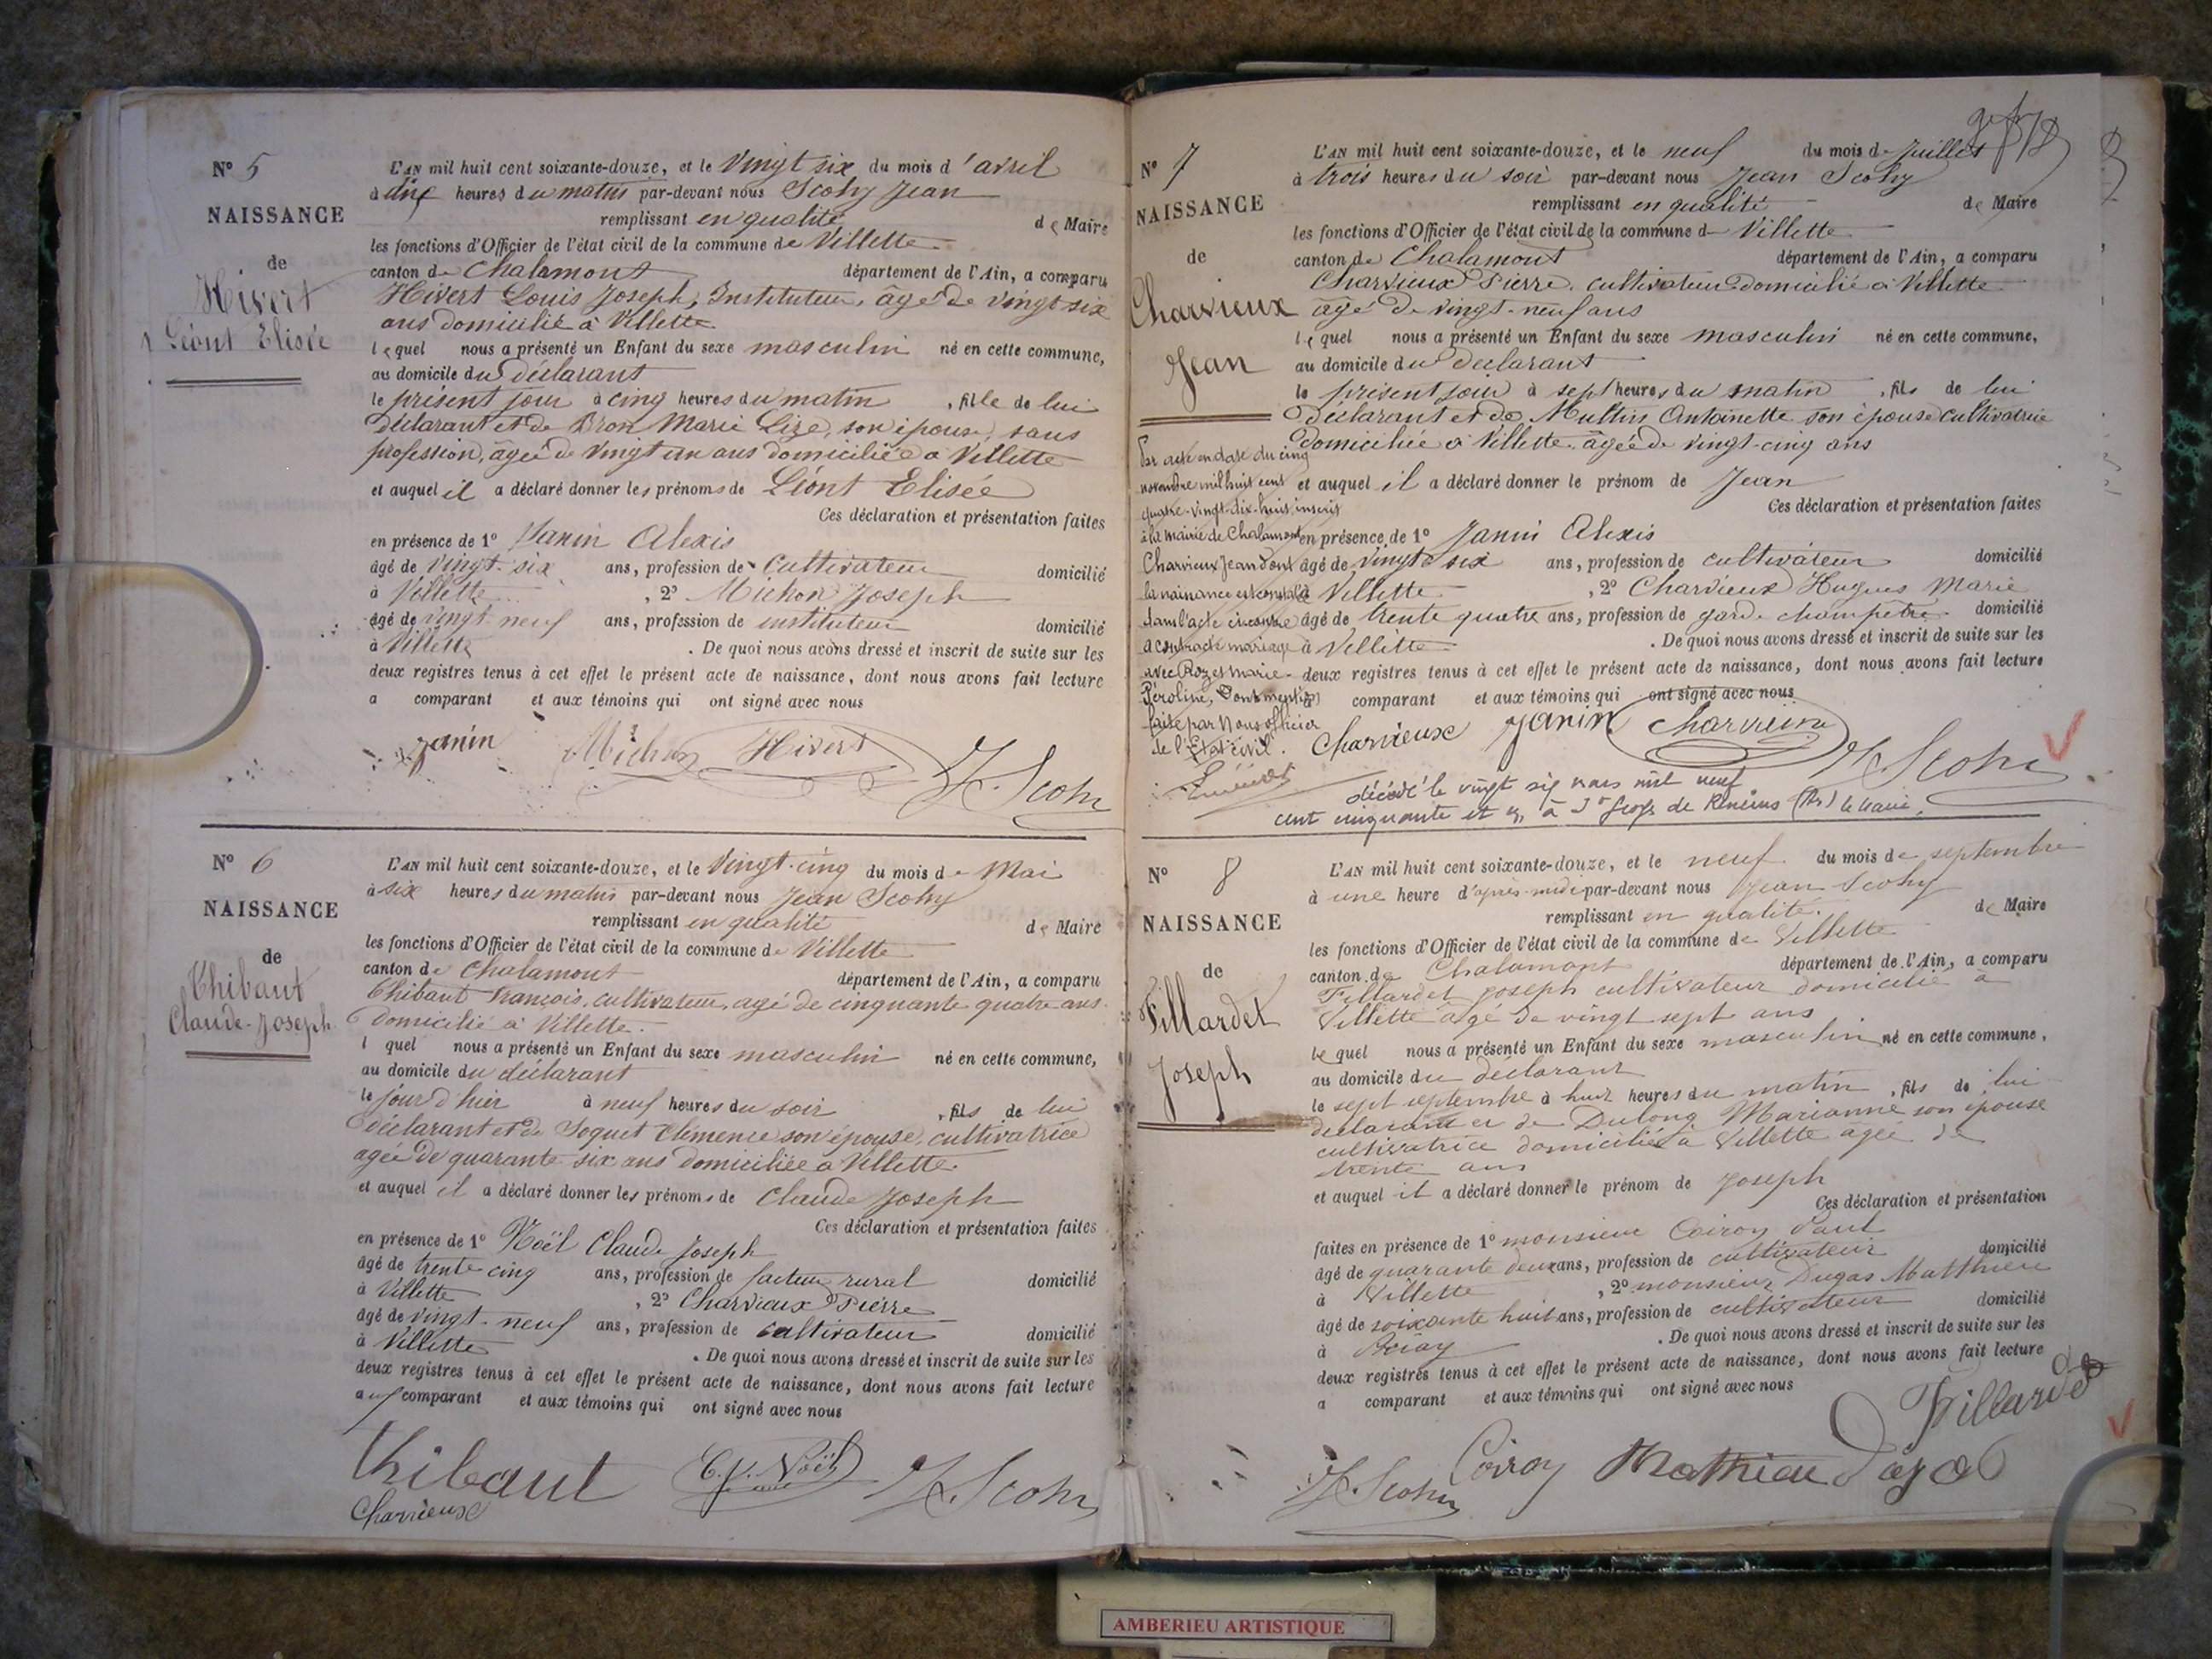 N° 5
NAISSANCE
de
Hivert
Léont Elisée
L'AN mil huit cent soixante-douze, et le Vingt six du mois d'avril
à dix heures du matin par-devant nous Scohy Jean
remplissant en qualité de Maire
les fonctions d'Officier de l'état civil de la commune de Villette
canton de Chalamont département de l'Ain, a comparu
Hivert Louis Joseph, Instituteur, âgé de vingt six
ans domicilié à Villette
lequel nous a présenté un Enfant du sexe masculin né en cette commune,
au domicile du déclarant
le présent jour à cinq heures du matin, fille de lui
déclarant et de Bron Marie Lize, son épouse, sans
profession, âgée de vingt un ans domiciliée a Villette
et auquel il a déclaré donner les prénoms de Léont Elisée
Ces déclaration et présentation faites
en présence de 1° Janin Alexis
âgé de vingt-six ans, profession de Cultivateur domicilié
à Villette, 2° Michon Joseph
âgé de vingt neuf ans, profession de instituteur domicilié
à Villette. De quoi nous avons dressé et inscrit de suite sur les
deux registres tenus à cet effet le présent acte de naissance, dont nous avons fait lecture
a comparant et aux témoins qui ont signé avec nous
Janin Michon Hivert J. Scohy
N° 6
NAISSANCE
de
Thibaut
Claude-Joseph
L'AN mil huit cent soixante-douze, et le Vingt-cinq du mois de Mai
à six heures du matin par-devant nous Jean Scohy
remplissant en qualité de Maire
les fonctions d'Officier de l'état civil de la commune de Villette
canton de Chalamont département de l'Ain, a comparu
Thibaut François, cultivateur, agé de cinquante quatre ans
domicilié à Villette.
l quel nous a présenté un Enfant du sexe masculin né en cette commune,
au domicile du déclarant
le jour d'hier à neuf heures du soir, fils de lui
déclarant et de Soquet Clémence son épouse, cultivatrice
agée de quarante six ans domiciliée a Villette.
et auquel il a déclaré donner les prénoms de Claude Joseph
Ces déclaration et présentation faites
en présence de 1° Noël Claude Joseph
âgé de trente cinq ans, profession de facteur rural domicilié
à Villette, 2° Charvieux Pierre
âgé de vingt-neuf ans, profession de cultivateur domicilié
à Villette. De quoi nous avons dressé et inscrit de suite sur les
deux registres tenus à cet effet le présent acte de naissance, dont nous avons fait lecture
au comparant et aux témoins qui ont signé avec nous
Thibaut C. J. Noël J. Scohy
Charvieux
N° 7
NAISSANCE
de
Charvieux
Jean
L'AN mil huit cent soixante-douze, et le neuf du mois de Juillet
à trois heures du soir par-devant nous Jean Scohy
remplissant en qualité de Maire
les fonctions d'Officier de l'état civil de la commune d Villette
canton de Chalamont département de l'Ain, a comparu
Charvieux Pierre, cultivateur domicilié à Villette
âgé de vingt-neuf ans
lequel nous a présenté un Enfant du sexe masculin né en cette commune,
au domicile du déclarant
le présent jour à sept heures du matin, fils de lui
déclarant et de Multin Antoinette son épouse cultivatrice
domiciliée à Villette âgée de vingt-cinq ans
et auquel il a déclaré donner le prénom de Jean
Ces déclaration et présentation faites
en présence de 1° Janin Alexis
âgé de vingt six ans, profession de cultivateur domicilié
à Villette, 2° Charvieux Hugues Marie
âgé de trente quatre ans, profession de garde champêtre domicilié
à Villette. De quoi nous avons dressé et inscrit de suite sur les
deux registres tenus à cet effet le présent acte de naissance, dont nous avons fait lecture
comparant et aux témoins qui ont signé avec nous
Charvieux Janin Charvieux J. Scohy
Par acte en date du cinq
novembre mil huit cent
quatre-vingt-dix-huit, inscrit
à la mairie de Chalamont
Charvieux Jean dont
la naissance est constatée
dans l'acte ci contre
a contracté mariage
avec Rozet Marie-
Péroline, Dont mention
faite par Nous officier
de l'Etat civil.
décédé le vingt six mars mil neuf
cent cinquante et un à St Georges de Reneins (Rh) le maire.
N° 8
NAISSANCE
de
Fillardet
Joseph
L'AN mil huit cent soixante-douze, et le neuf du mois de septembre
à une heure d'après-midi par-devant nous Jean Scohy
remplissant en qualité. de Maire
les fonctions d'Officier de l'état civil de la commune de Villette
canton de Chalamont département de l'Ain, a comparu
Fillardet Joseph cultivateur domicilié à
Villette âgé de vingt sept ans
lequel nous a présenté un Enfant du sexe masculin né en cette commune,
au domicile du déclarant
le sept septembre à huit heures du matin, fils de lui
déclarant et de Dulong Marianne son épouse
cultivatrice domiciliée à Villette agée de
trente ans
et auquel il a déclaré donner le prénom de Joseph
Ces déclaration et présentation
faites en présence de 1° monsieur Coiroy Paul
âgé de quarante deux ans, profession de cultivateur domicilié
à Villette, 2° monsieur Dugas Matthieu
âgé de soixante huit ans, profession de cultivateur domicilié
à Priay. De quoi nous avons dressé et inscrit de suite sur les
deux registres tenus à cet effet le présent acte de naissance, dont nous avons fait lecture
a comparant et aux témoins qui ont signé avec nous
Fillardet
J. Scohy Coiroy Mathieu Dugas
AMBERIEU ARTISTIQUE